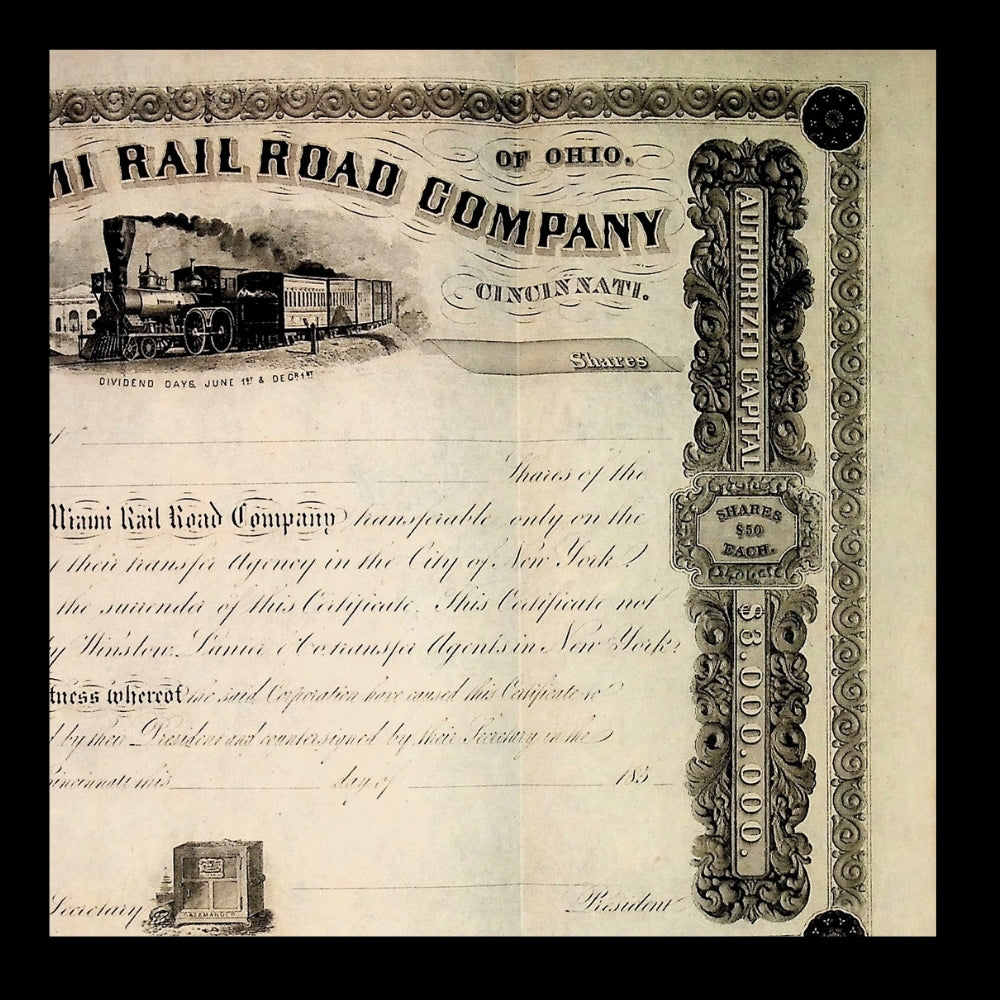 MI RAIL ROAD COMPANY
OF OHIO.
CINCINNATI.
Shares
DIVIDEND DAYS, JUNE 1ST & DECR 1ST
Shares of the
Miami Rail Road Company transferable only on the
their transfer Agency in the City of New York
the surrender of this Certificate. This Certificate not
Winslow, Lanier & Co. transfer Agents in New York
tness whereof the said Corporation have caused this Certificate to
by their President and countersigned by their Secretary in the
incinnati this day of 185
Secretary
SALAMANDER
President
AUTHORIZED CAPITAL
SHARES
$50
EACH.
$3.000.000.